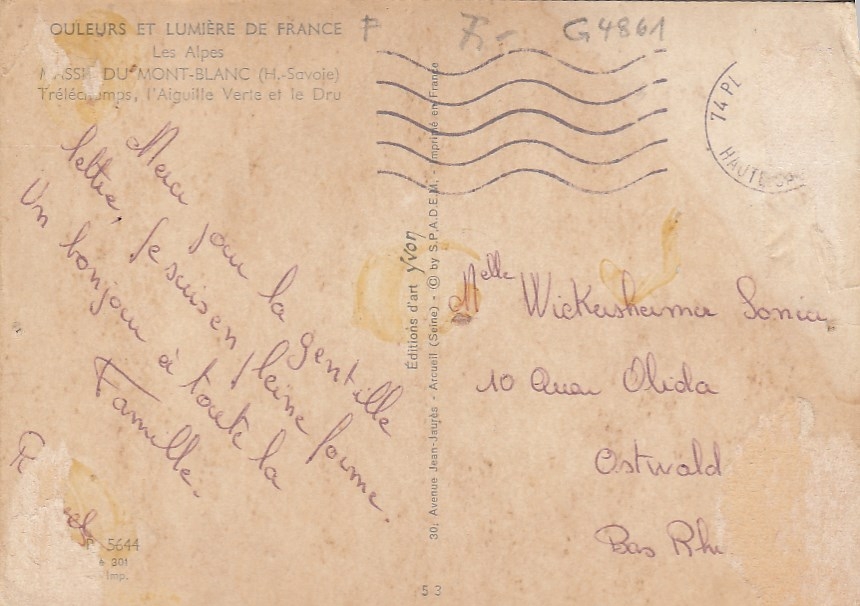 OULEURS ET LUMIÈRE DE FRANCE
Les Alpes
DU MONT-BLANC (H.-Savoie)
l'Aiguille Verte et le Dru
P
7,-
G4861
74 PL
HAUTE
Merci pour la gentille
lettre, Je suis en pleine forme.
Un bonjour à toute la
Famille.
Éditions d'art yvon
30, Avenue Jean-Jaurès - Arcueil (Seine) - © by S.P.A.D.E.M. - Imprimé en France
Melle Wickersheimer Sonia
10 Quai Olida
Ostwald
Bas Rhi
5644
301
Imp.
53